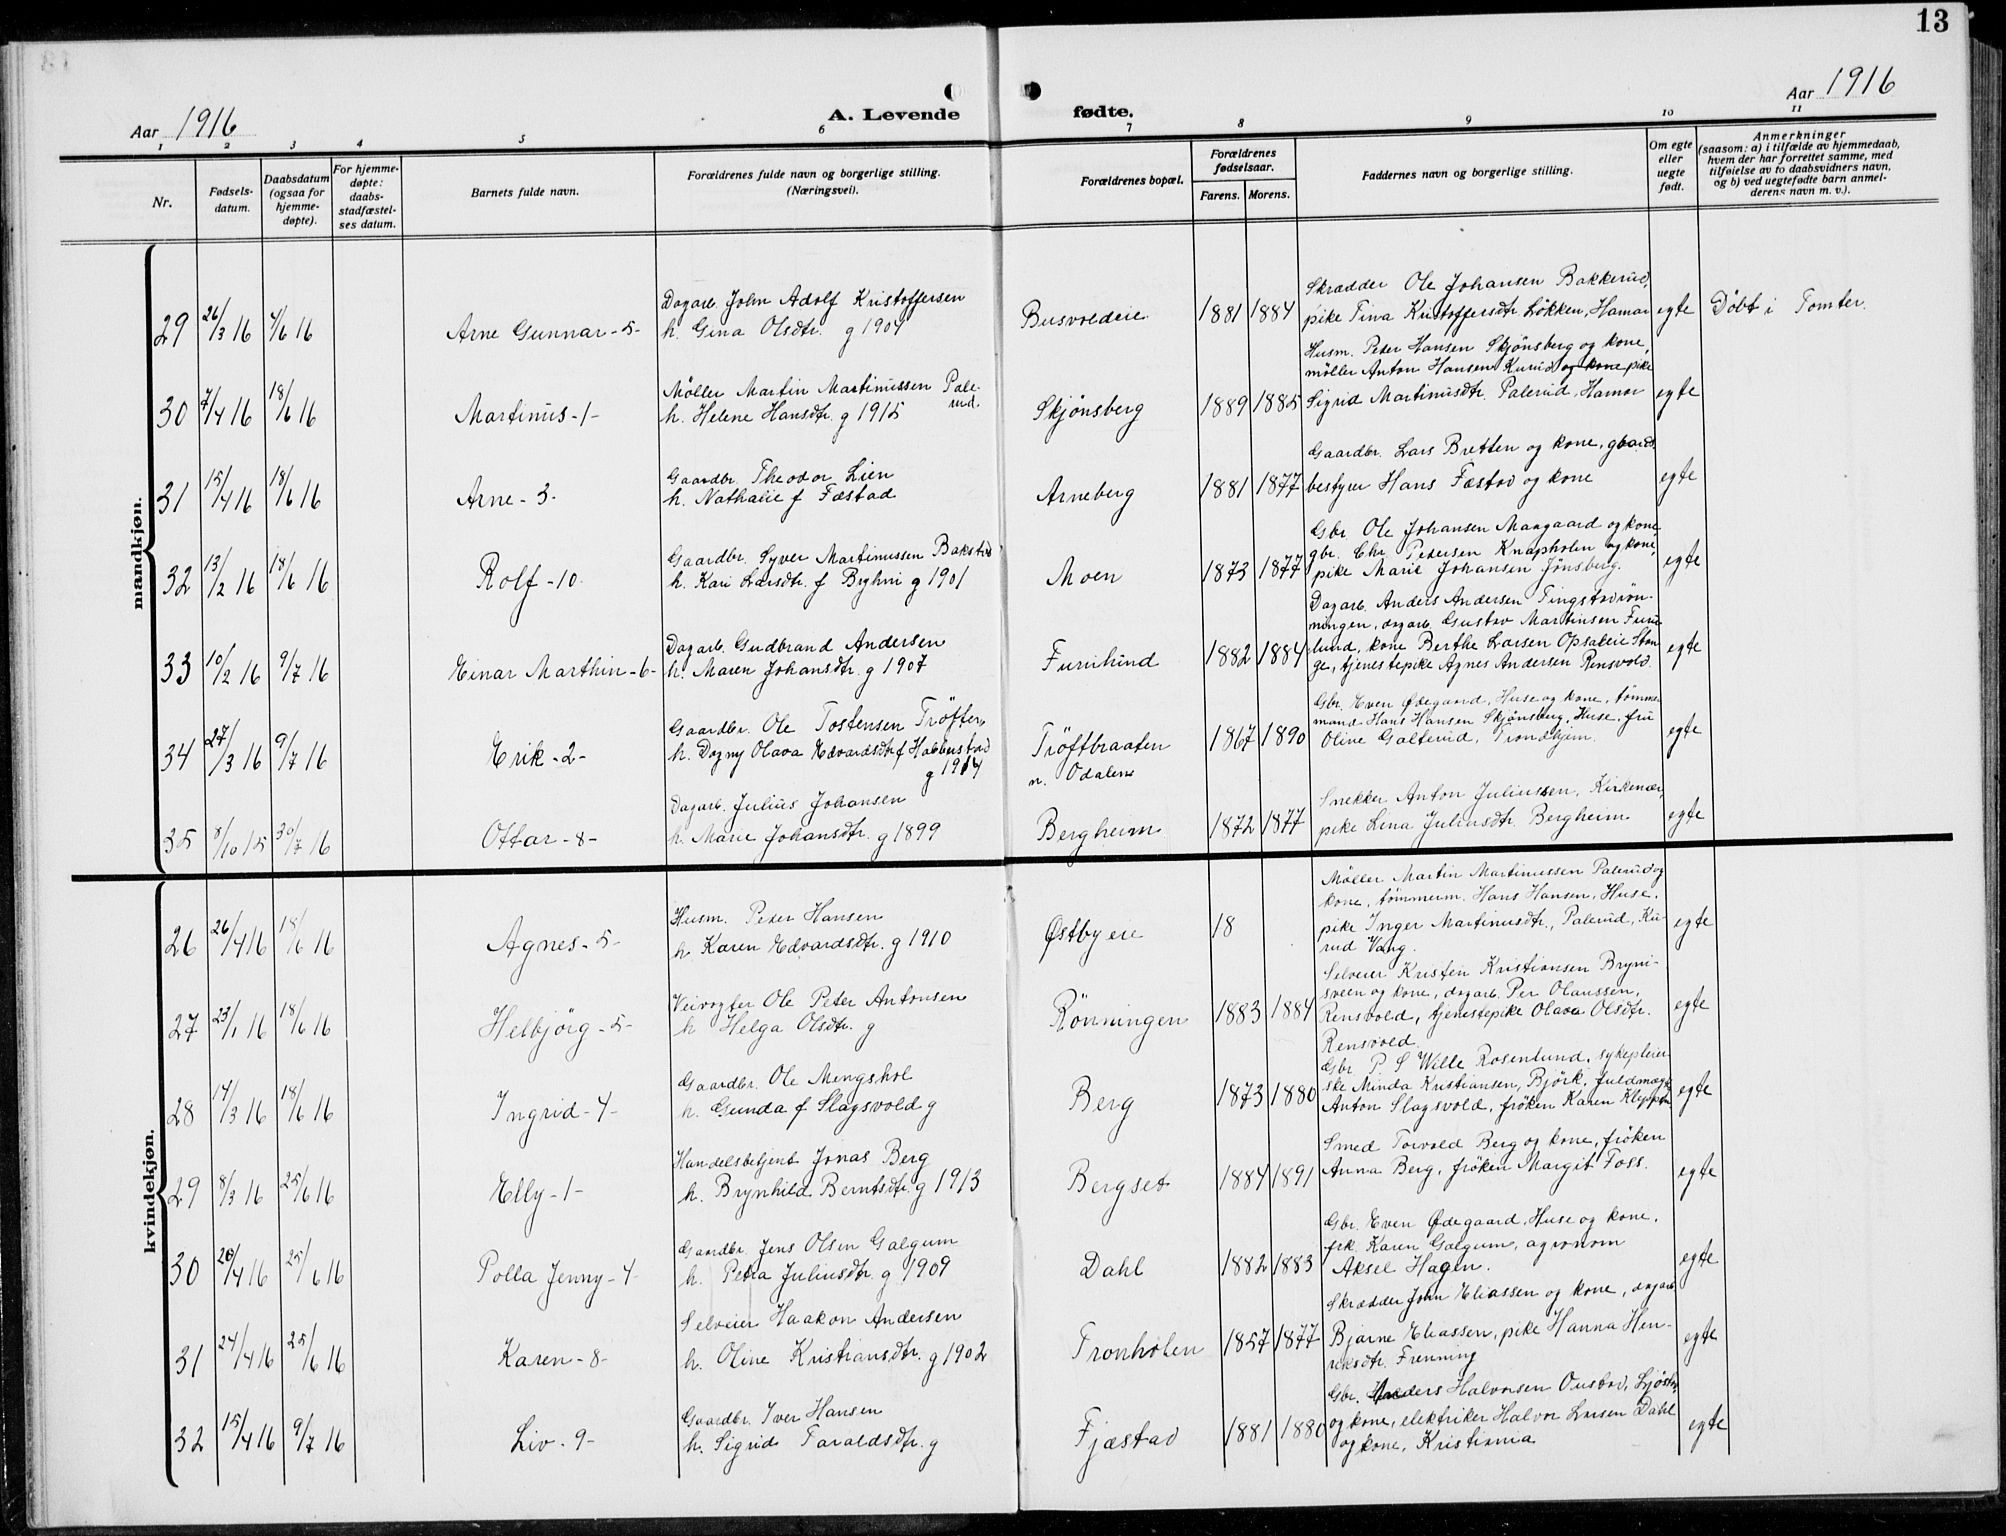 13
Aar 1916
A. Levende fødte.
Aar 1916
1 2 3 4 5 6 7 8 9 10 11
Nr.
Fødsels-
datum.
Daabsdatum
(ogsaa for
hjemme-
døpte).
For hjemme-
døpte:
daabs-
stadfæstel-
ses datum.
Barnets fulde navn.
Forældrenes fulde navn og borgerlige stilling.
(Næringsvei).
Forældrenes bopæl.
Forældrenes
fødselsaar.
Farens. Morens.
Faddernes navn og borgerlige stilling.
Om egte
eller
uegte
født.
Anmerkninger
(saasom: a) i tilfælde av hjemmedaab,
hvem der har forrettet samme, med
tilføielse av to daabsvidners navn,
og b) ved uegtefødte barn anmel-
derens navn m. v.).
mandkjøn.
29 26/3 16 4/6 16 Arne Gunnar -5-
Dagarb. John Adolf Kristoffersen
h. Gina Olsdtr. g 1904
Busvoldeie 1881 1884
Skrædder Ole Johansen Bakkerud,
pike Tina Kristoffersdtr Løkken, Hamar
egte Döbt i Tomter.
30 7/4 16 18/6 16 Martinus -1-
Møller Martin Martinussen Pale-
rud.
h. Helene Hansdtr. g 1915
Skjønsberg 1889 1885
Husm. Peter Hansen Skjønsberg og kone,
møller Anton Hansen Kurud og kone pike
Sigrid Martinusdtr. Palerud, Hamar
egte
31 15/4 16 18/6 16 Arne -3-
Gaardbr. Theodor Lien
h. Nathalie f Fæstad
Arneberg 1881 1877
Gaardbr. Lars Bretten og kone, gaards
bestyrer Hans Fæstad og kone
egte
32 13/2 16 18/6 16 Rolf -10-
Gaardbr. Syver Martinussen Bakstad
h. Kari Larsdtr. f Bryhni g 1901
Moen 1873 1877
Gbr. Ole Johansen Maagaard og kone,
gbr. Chr. Petersen Knapholen og kone,
pike Marie Johansen Jønsberg.
egte
33 10/2 16 9/7 16 Einar Marthin -6-
Dagarb. Gudbrand Andersen
h. Maren Johansdtr. g 1907
Furulund 1882 1884
Dagarb. Anders Andersen Tingstadrøn-
ningen, dagarb. Gustav Martinsen Furu-
lund, kone Berthe Larsen Opsaleie Stan-
ge, tjenestepike Agnes Andersen Rensvold.
egte
34 27/3 16 9/7 16 Erik -2-
Gaardbr. Ole Tostensen Trøften
h. Dagny Olava Edvardsdtr f Habberstad
g 1914
Trøftbraaten
n. Odalen
1867 1890
Gbr. Even Ødegaard, Huse og kone, tømmer
mand Hans Hansen Skjønsberg, Huse, fru
Oline Galterud, Trondhjem.
egte
35 8/10 15 30/7 16 Ottar -8-
Dagarb. Julius Johansen
h. Marie Johansdtr. g 1899
Bergheim 1872 1877
Snekker Anton Juliussen, Kirkenær,
pike Lena Juliusdtr. Bergheim
egte
kvindekjøn.
26 26/4 16 18/6 16 Agnes -5-
Husm. Peter Hansen
h Karen Edvardsdtr. g 1910
Østbyeie 18
Møller Martin Martinussen Palerud og
kone, tømmerm. Hans Hansen, Huse,
pike Inger Martinusdtr., Palerud, Ku-
rud Vang.
egte
27 23/1 16 18/6 16 Helbjörg -5-
Veivogter Ole Peter Antonsen
h Helga Olsdtr. g
Rönningen 1883 1884
Selveier Kristen Kristiansen Bryni-
sveen og kone, dagarb. Per Olaussen,
Rensvold, tjenestepike Olava Olsdtr.
Rensvold.
egte
28 14/3 16 18/6 16 Ingrid -4-
Gaardbr. Ole Mengshol
h. Gunda f Slagsvold g
Berg 1873 1880
Gbr P. S Wille Rosenlund, sykepleier-
ske Minda Kristiansen, Björk, fuldmægt.
Anton Slagsvold, frøken Karen Kleppen
egte
29 8/3 16 25/6 16 Elly -1-
Handelsbetjent Jonas Berg
h. Brynhild Berntsdtr. g 1913
Bergset 1884 1891
Smed Torvald Berg og kone, frøken
Anna Berg, frøken Margit Foss.
egte
30 20/4 16 25/6 16 Polla Jenny -4-
Gaardbr. Jens Olsen Galgum
h. Petra Juliusdtr. g 1909
Dahl 1882 1883
Gbr. Even Ødegaard, Huse og kone,
frk. Karen Galgum, agronom
Aksel Hagen.
egte
31 24/4 16 25/6 16 Karen -8-
Selveier Haakon Andersen
h. Oline Kristiansdtr. g 1902
Tronholen 1857 1877
Skrædder John Eliassen og kone, dagarb
Bjarne Eliassen, pike Hanna Hen-
riksdtr. Frenning
egte
32 15/4 16 9/7 16 Liv -9-
Gaardbr. Iver Hansen
h. Sigrid Taraldsdtr. g
Fjæstad 1881 1880
Gbr. Anders Halvorsen Oustad, Ljøstad
og kone, elektriker Halvor Larsen Dahl
og kone, Kristiania
egte